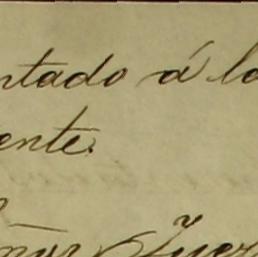 ntado á lo
ente.
eñor Juez